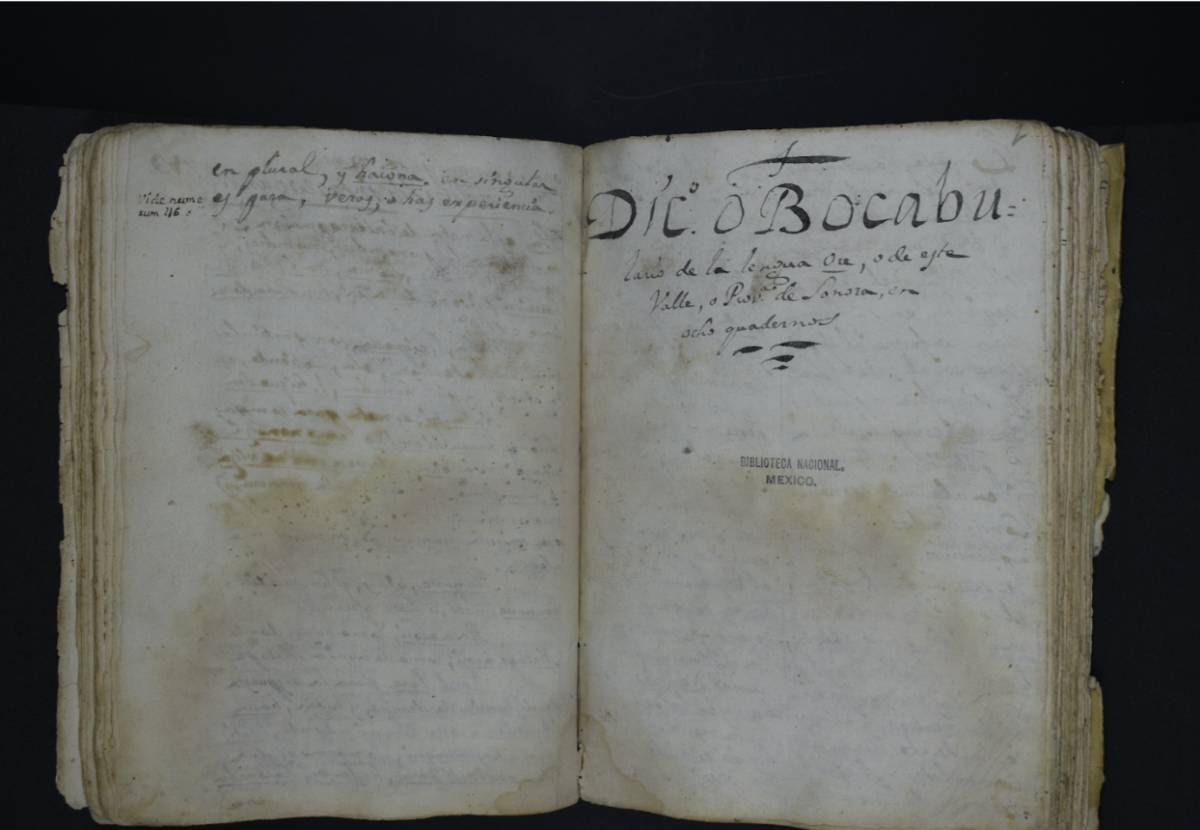 en plural, y haiona. en singular
es gara, veros, o has experiencia.
Vide nume-
rum 116.
Dicº. o Bocabu=
lario de la lengua Ore, o de este
Valle, o Provª de Sonora, en
ocho quadernos
BIBLIOTECA NACIONAL.
MEXICO.